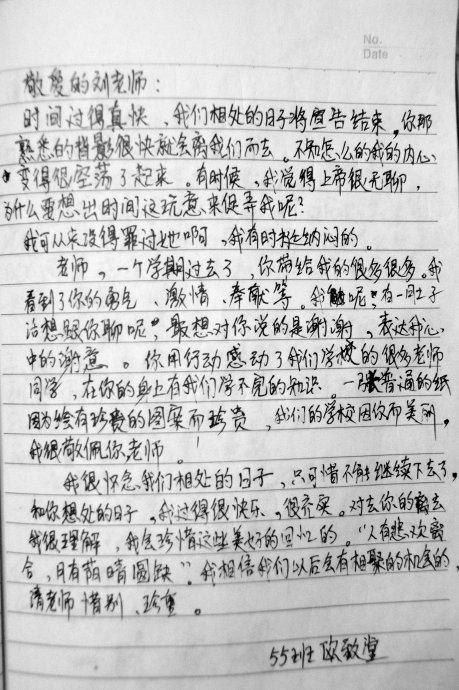 No.
Date
敬爱的刘老师：
时间过得真快，我们相处的日子将宣告结束，你那
熟悉的背影很快就会离我们而去。不知怎么的我的内心
变得很空荡了起来。有时候，我觉得上帝很无聊，
为什么要想出时间这玩意来促弄我呢？
我可从来没得罪过她啊，我有时挺纳闷的。
老师，一个学期过去了，你带给我的很多很多。我
看到了你的勇气、激情、奉献等。我呢，有一肚子
话想跟你聊呢，最想对你说的是谢谢，表达我心
中的谢意。你用行动感动了我们学校的很多老师
同学，在你的身上有我们学不完的知识。一张普通的纸
因为绘有珍贵的图案而珍贵，我们的学校因你而美丽，
我很敬佩你老师。！
我很怀念我们相处的日子，只可惜不能继续下去了，
和你想处的日子，我过得很快乐、很充实。对去你的离去
我很理解，我会珍惜这些美好的回忆的。“人有悲欢离
合，月有阴晴圆缺”。我相信我们以后会有相聚的机会的，
请老师惜别、珍重。
55班 欧教堂